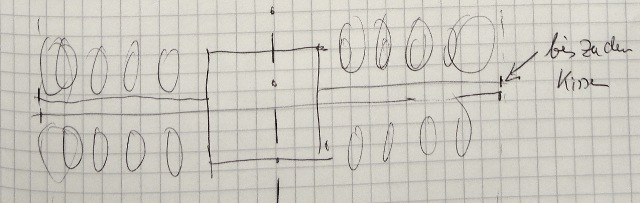 bis zu den
Kissen